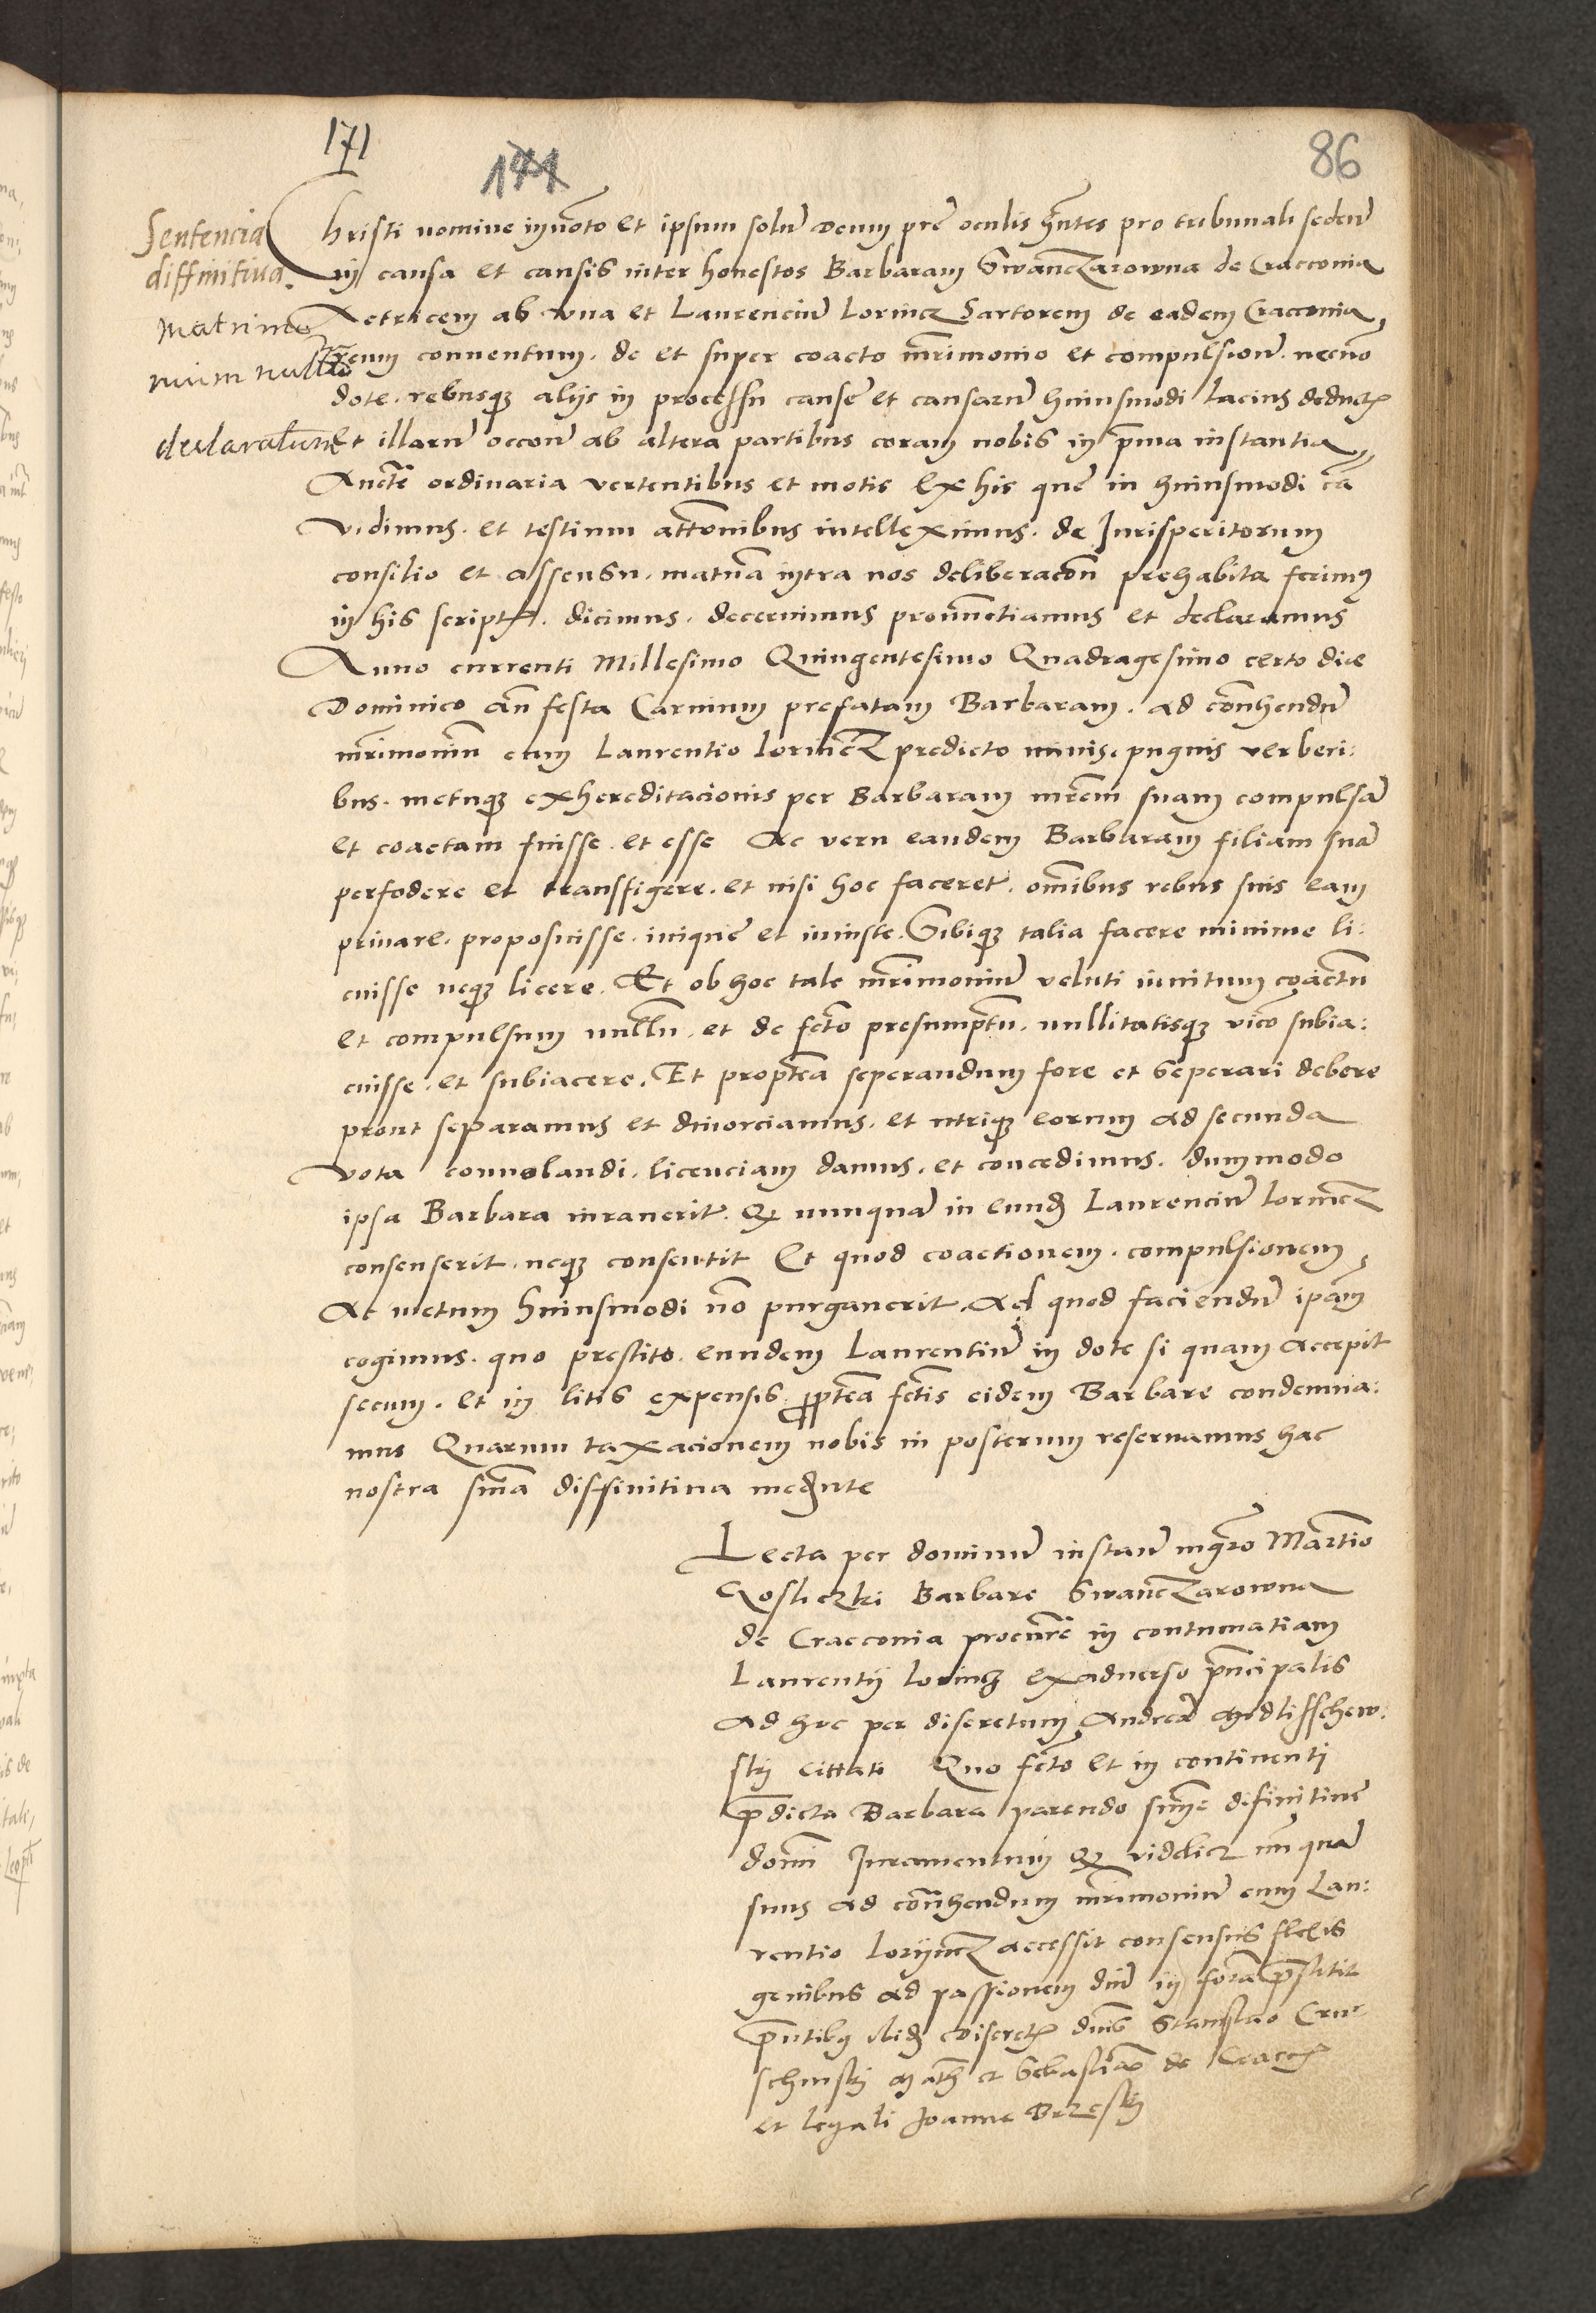 171
144
86
Sentencia
diffinitiua.
Matrimo
nium nullū
declaratum
Christi nomine inuōto et ipsum solū deum pre oculis hñtes pro tribunali sedeñ
in causa et causis inter honestos Barbaram Swanczarowna de Cracconia
Actricem ab vna et Laurenciū Lorincz Sartorem de eadem Cracconia,
reum conuentum. de et super coacto mrimonio et compulsione. necnō
dote. rebusqz alijs in processu cause et causarū huiusmodi lacius deduct
et illarū occoñe ab altera partibus coram nobis in pma instantia
Aucte ordinaria vertentibus et motis Ex his que in huiusmodi cā
vidimus. et testium attōnibus intelleximus. de Jurisperitorum
consilio et assensu. matura intra nos deliberacōn prehabita ferimus
in his script. dicimus. decernimus pronūctiamus et declaramus
Anno currenti Millesimo Quingentesimo Quadragesimo certo die
Dominico añ festa Carnium prefatam Barbaram. ad cōnhendū
mrimoniū cum Laurentio Lorincz predicto minis. pugnis verberi:
bus. metuqz exhereditacionis per Barbaram mrem suam compulsā
et coactam fuisse. et esse Ac veru eandem Barbaram filiam suā
perfodere et transfigere. et nisi hoc faceret. omibus rebus suis eam
priuare. proposuisse. inique et iniuste. Sibiqz talia facere minime li:
cuisse neqz licere. Et ob hoc tale mrimoniū veluti inuitum coactū
et compulsum nullū. et de fcto presumptū. nullitatisqz vico subia:
cuisse. et subiacere. Et proptea seperandum fore et seperari debere
prout separamus et diuorciamus. et utriqz eorum ad secunda
vota conuolandi. licenciam damus. et concedimus. dummodo
ipsa Barbara iurauerit. qz nunquā in eundē Laurenciū Lorincz
consenserit. neqz consentit Et quod coactionem. compulsionem,
Ac metum huiusmodi nō purgauerit. Ad quod faciendū ipam
cogimus. quo prestito. eundem Laurentiū in dote si quam accepit
secum. et in litis expensis proptea fctis eidem Barbare condemna:
mus Quarum taxacionem nobis in posterum reseruamus hac
nostra sma diffinitiua medinte
Lecta per dominū instan mgro Martīo
Gosliczki Barbare Swanczarowna
de Cracconia procurē in contumatiam
Laurentij Lorincz exaduerso pncipalis
ad hoc per discretum Andreā Modlisschew:
skij cittati Quo fcto et in continenti
pdicta Barbara parendo smie difinitiue
domi Juramentum qz videlicz nūquā
suus ad cōnhendum mrimoniū cum Lau:
rentio Lorijncz accessit consensus flexis
genibus ad passionem dni in forā pstitit
pntibus ibidē discretis dnis Stanislao
schinskij Math et Sebastiā de Cracc
et legali Joanne Brzeskij